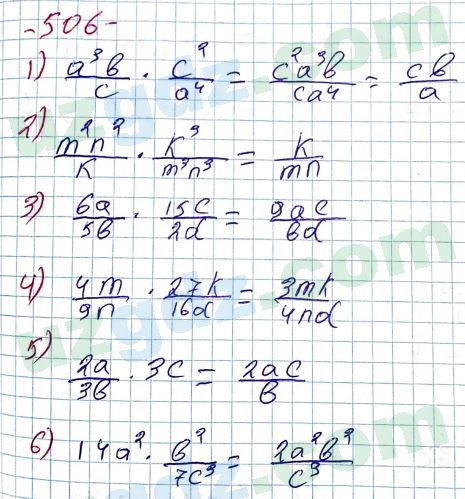 -506-
1) a³b/c · c²/a⁴ = c²a³b/ca⁴ = cb/a
2) m²n²/k · k³/m³n³ = k/mn
3) 6a/5b · 15c/2d = 9ac/bd
4) 4m/9n · 27k/16d = 3mk/4nd
5) 2a/3b · 3c = 2ac/b
6) 14a² · b²/7c³ = 2a²b²/c³